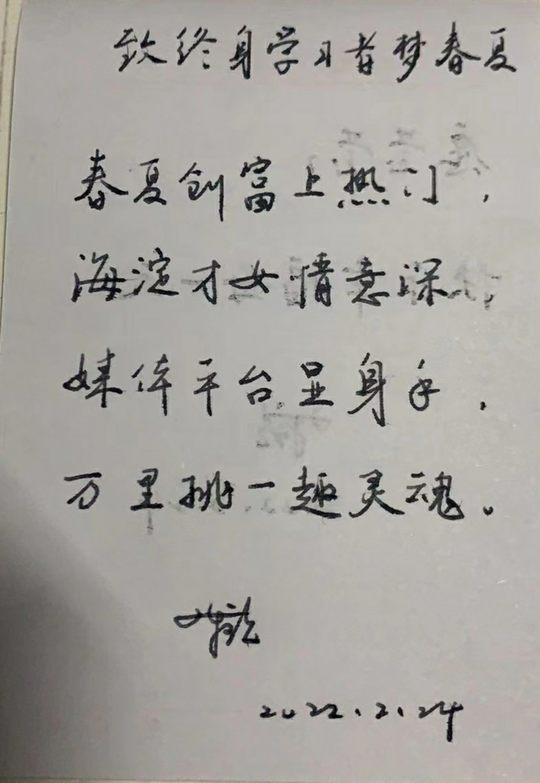 致终身学习者梦春夏
春夏创富上热门，
海淀才女情意深，
媒体平台显身手，
万里挑一趣灵魂。
2022.2.24